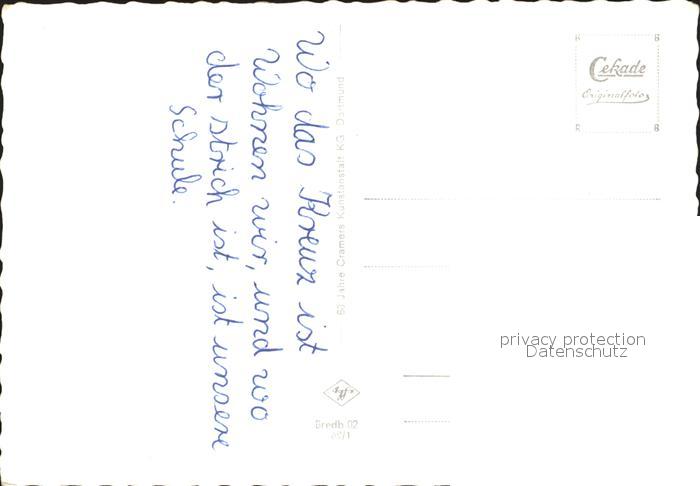 Wo das Kreuz ist
wohnen wir, und wo
der strich ist, ist unsere
Schule.
60 Jahre Cramers Kunstanstalt KG Dortmund
Cekade
Originalfoto
privacy protection
Datenschutz
Bredb 02